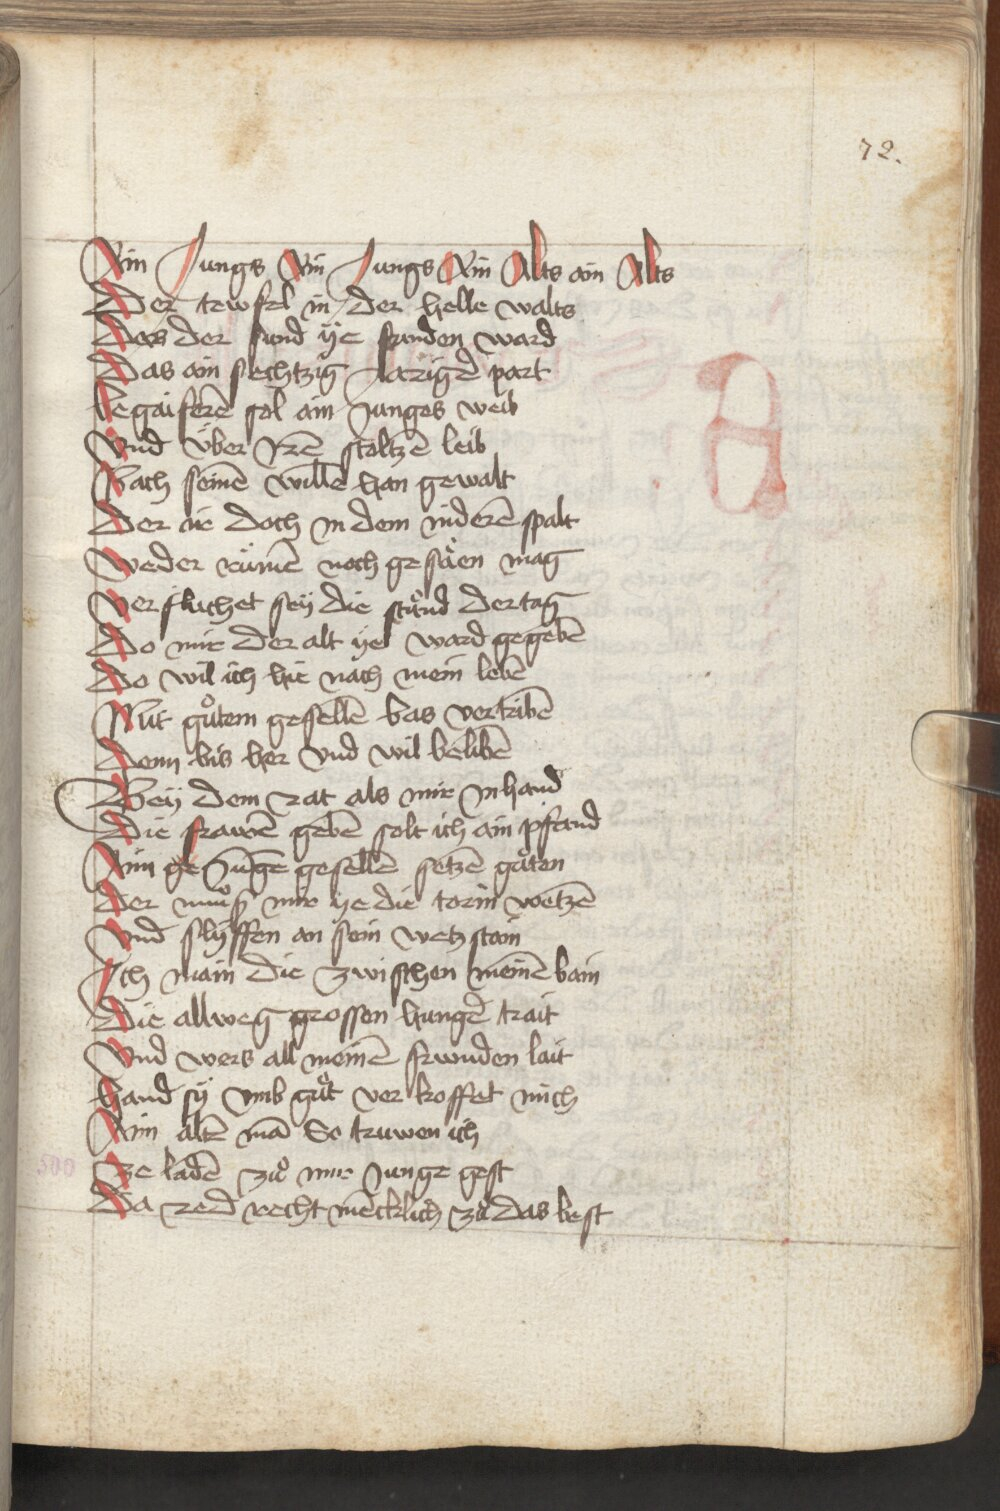 72.
Ain Jungs Ain Jungs Ain Alts ain Alts
Der tewfel in der helle walts
Des der fund ye funden ward
Das ain sechtzig Järige᷑ part
begaiferē sol ain Junges weib
Vnd über Irē stoltzē leib
Nach seinē willē han gewalt
Der ir doch in dem niderē spalt
Weder räumē noch gesäen mag
Verfluchet sey die stuͦnd der tag
Do mir der alt ye ward gegebē
Do wil ich hie nach mein lebē
Mit guͦtem gesellē bas vertribē
Denn bis her Vnd wil belibē
Bey dem rat als mir In hand
Die frawē gebē solt ich ain pfand
Aim ge Jūgē gesellē setzē guͦten
Der muͦß mir ye die torin wetzē
Vnd slyffen an sein wetzstain
Ich main die zwischen meinē bain
Die allweg grossen hunge᷑ trait
Vnd wers all meinē frwnden lait
hand sy vmb guͦt verkoffet mich
Aim altē mā So truwen ich
500
ze ladē zuͦ mir Junge gest
Da red recht mēcklich zuͦ das best